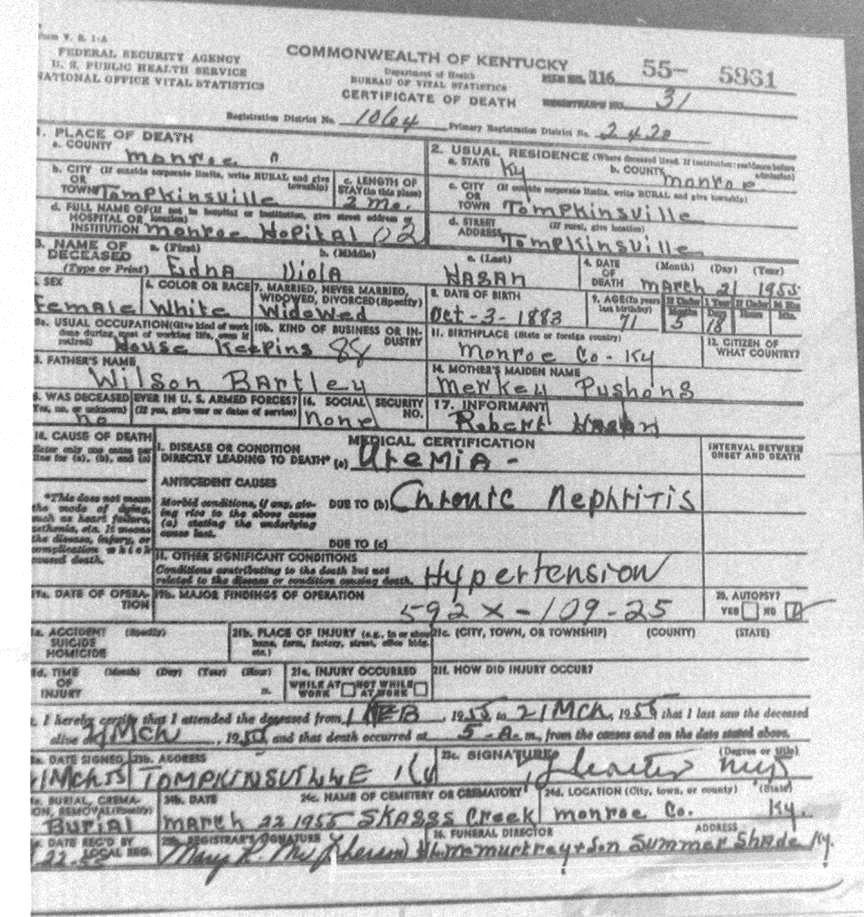 Form V. S. 1-A
FEDERAL SECURITY AGENCY
U. S. PUBLIC HEALTH SERVICE
NATIONAL OFFICE VITAL STATISTICS
COMMONWEALTH OF KENTUCKY
Department of Health
BUREAU OF VITAL STATISTICS
CERTIFICATE OF DEATH
FILE NO. 116 55- 5861
REGISTRAR'S NO. 31
Registration District No. 1064 Primary Registration District No. 2420
1. PLACE OF DEATH
a. COUNTY Monroe
b. CITY (If outside corporate limits, write RURAL and give township)
OR TOWN Tompkinsville
c. LENGTH OF STAY (in this place) 2 Mo.
d. FULL NAME OF (If not in hospital or institution, give street address or location)
HOSPITAL OR INSTITUTION Monroe Hopital 02
2. USUAL RESIDENCE (Where deceased lived. If institution: residence before admission)
a. STATE Ky b. COUNTY Monroe
c. CITY (If outside corporate limits, write RURAL and give township)
OR TOWN Tompkinsville
d. STREET ADDRESS (If rural, give location)
Tompkinsville
3. NAME OF DECEASED (Type or Print)
a. (First) b. (Middle) c. (Last)
Edna Viola Hagan
4. DATE OF DEATH (Month) (Day) (Year)
March 21 1955
5. SEX Female
6. COLOR OR RACE White
7. MARRIED, NEVER MARRIED, WIDOWED, DIVORCED (Specify) Widowed
8. DATE OF BIRTH Oct-3-1883
9. AGE (In years last birthday) 71
If Under 1 Year Months 5 Days 18
If Under 24 Hrs. Hours Min.
10a. USUAL OCCUPATION (Give kind of work done during most of working life, even if retired) House Keeping 88
10b. KIND OF BUSINESS OR INDUSTRY
11. BIRTHPLACE (State or foreign country) Monroe Co-Ky
12. CITIZEN OF WHAT COUNTRY?
13. FATHER'S NAME
Wilson Bartley
14. MOTHER'S MAIDEN NAME
Merkey Pushons
15. WAS DECEASED EVER IN U. S. ARMED FORCES?
(Yes, no, or unknown) (If yes, give war or dates of service)
no
16. SOCIAL SECURITY NO. None
17. INFORMANT
Robert Hagan
18. CAUSE OF DEATH
Enter only one cause per line for (a), (b), and (c)
*This does not mean the mode of dying, such as heart failure, asthenia, etc. It means the disease, injury, or complication which caused death.
MEDICAL CERTIFICATION
INTERVAL BETWEEN ONSET AND DEATH
I. DISEASE OR CONDITION DIRECTLY LEADING TO DEATH* (a) Uremia -
ANTECEDENT CAUSES
Morbid conditions, if any, giving rise to the above cause (a) stating the underlying cause last.
DUE TO (b) Chronic Nephritis
DUE TO (c)
II. OTHER SIGNIFICANT CONDITIONS
Conditions contributing to the death but not related to the disease or condition causing death.
Hypertension
19a. DATE OF OPERATION
19b. MAJOR FINDINGS OF OPERATION
592X-109-25
20. AUTOPSY?
YES NO
21a. ACCIDENT SUICIDE HOMICIDE (Specify)
21b. PLACE OF INJURY (e.g., in or about home, farm, factory, street, office bldg. etc.)
21c. (CITY, TOWN, OR TOWNSHIP) (COUNTY) (STATE)
21d. TIME OF INJURY (Month) (Day) (Year) (Hour) m.
21e. INJURY OCCURRED
WHILE AT WORK NOT WHILE AT WORK
21f. HOW DID INJURY OCCUR?
I hereby certify that I attended the deceased from 1 FEB, 1955 to 21 Mch, 1955 that I last saw the deceased
alive 21 Mch, 1955 and that death occurred at 5-A m., from the causes and on the date stated above.
DATE SIGNED
23b. ADDRESS TOMPKINSVILLE Ky
23c. SIGNATURE (Degree or title)
BURIAL, CREMATION, REMOVAL (Specify) Burial
24b. DATE March 22 1955
24c. NAME OF CEMETERY OR CREMATORY Skaggs Creek
24d. LOCATION (City, town, or county) (State) Monroe Co. Ky.
DATE REC'D BY LOCAL REG. 22-55
25b. REGISTRAR'S SIGNATURE
26. FUNERAL DIRECTOR ADDRESS
McMurtrey + Son Summer Shade Ky.